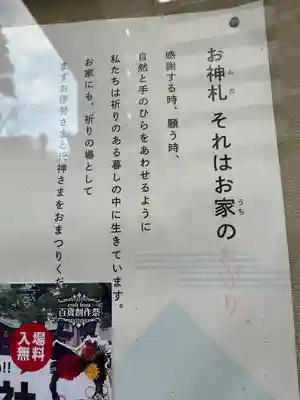 お神札 それはお家の
ふだ
うち
感謝する時、願う時、
自然と手のひらをあわせるように
私たちは祈りのある暮しの中に生きています。
お家にも、祈りの場として
まずお伊勢さまと氏神さまをおまつりくだ
craft fiesta
百貨創作祭
入場
無料